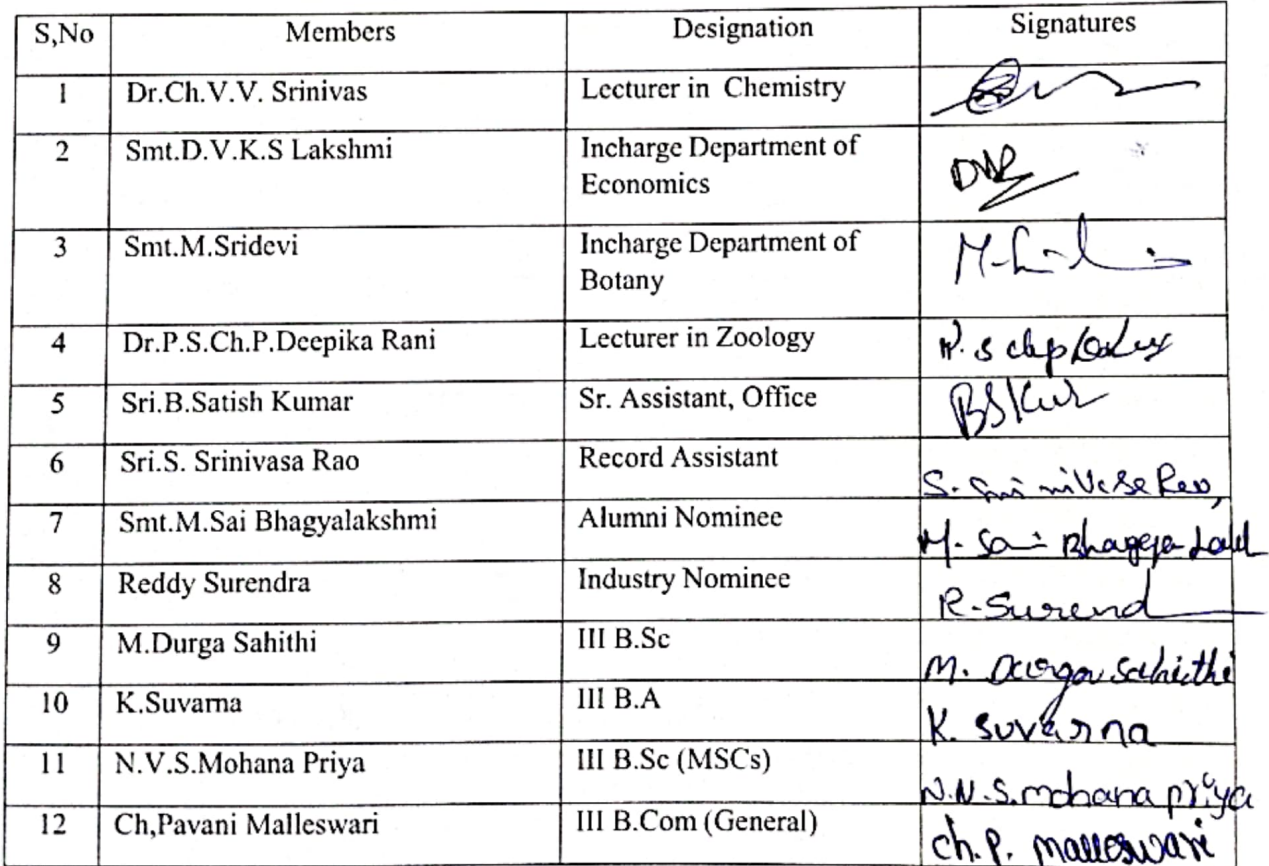 S,No Members Designation Signatures
1 Dr.Ch.V.V. Srinivas Lecturer in Chemistry
2 Smt.D.V.K.S Lakshmi Incharge Department of
Economics
3 Smt.M.Sridevi Incharge Department of
Botany
4 Dr.P.S.Ch.P.Deepika Rani Lecturer in Zoology
5 Sri.B.Satish Kumar Sr. Assistant, Office
6 Sri.S. Srinivasa Rao Record Assistant
7 Smt.M.Sai Bhagyalakshmi Alumni Nominee
8 Reddy Surendra Industry Nominee R.Surend
9 M.Durga Sahithi III B.Sc M. Durga Sahithi
10 K.Suvarna III B.A K. Suvarna
11 N.V.S.Mohana Priya III B.Sc (MSCs) N.V.S.mohana priya
12 Ch,Pavani Malleswari III B.Com (General) Ch.P. Malleswari